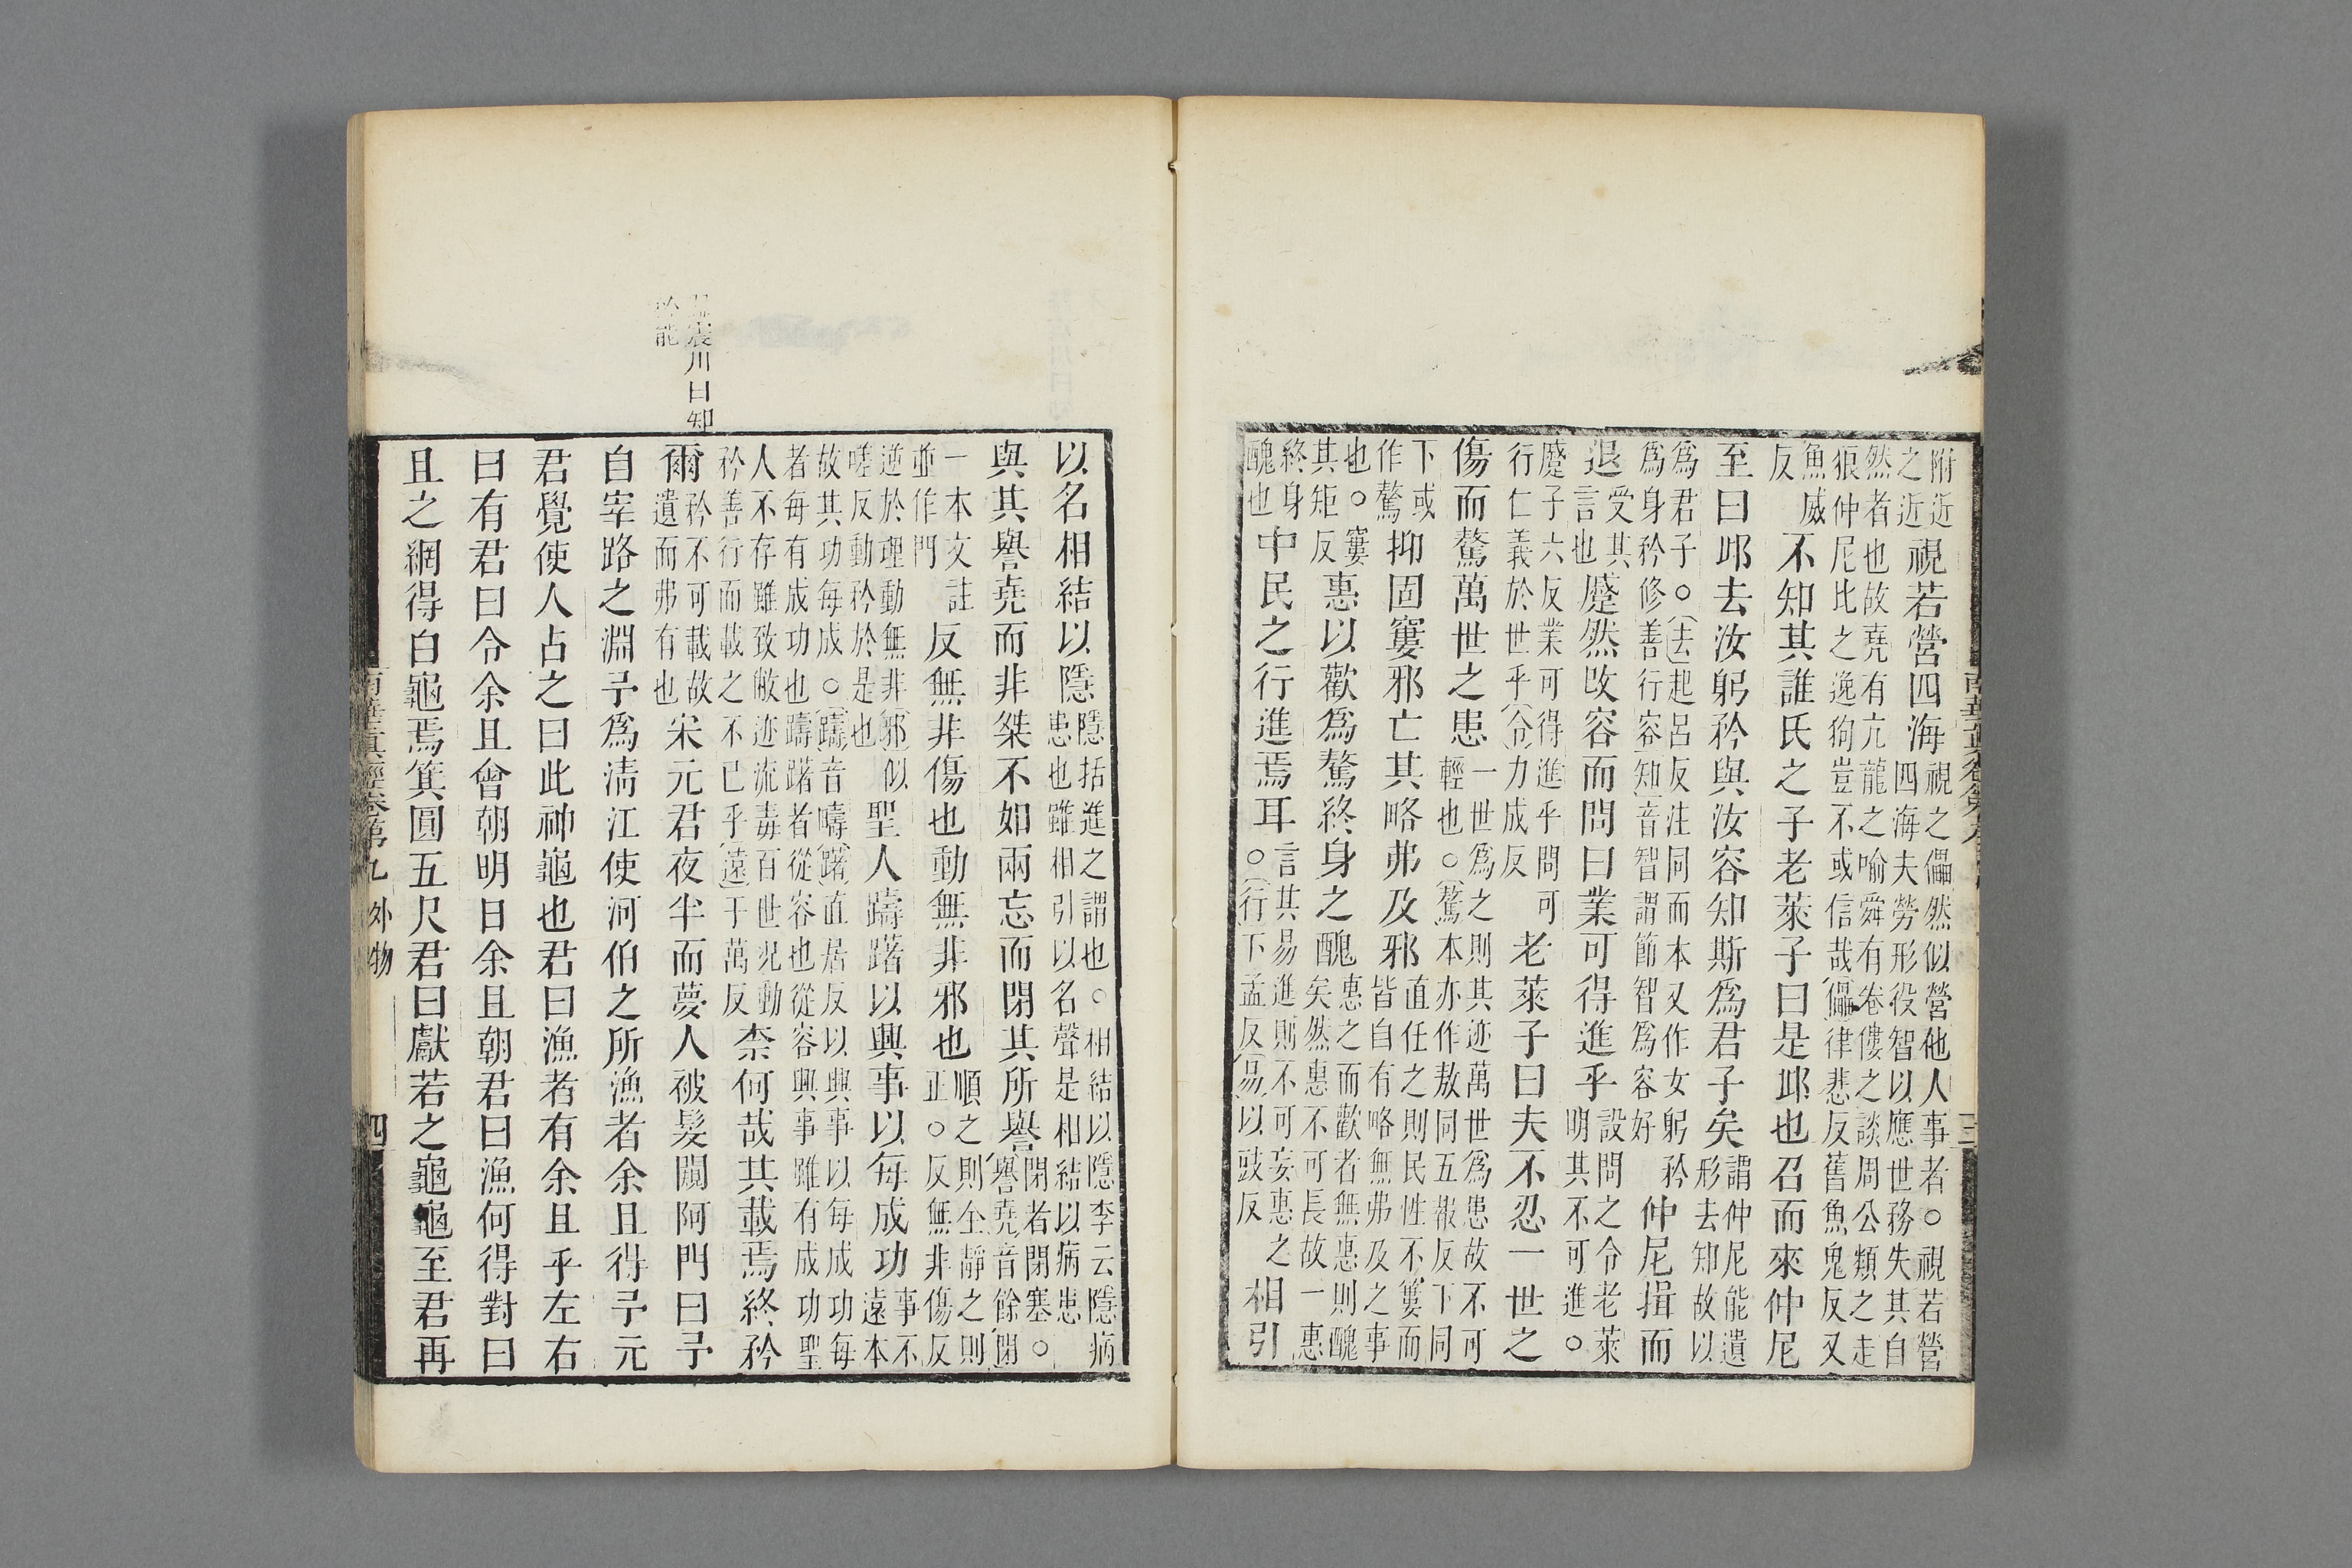 附近之近視若營四海視之儡然似營他人事者○視若營四海夫勞形役智以應世務失其自
然者也故堯有亢龍之喻舜有卷僂之談周公類之走狼仲尼比之逸狗豈不或信哉(儡)律悲反舊魚鬼反又
魚威反不知其誰氏之子老萊子曰是邱也召而來仲尼
至曰邱去汝躬矜與汝容知斯爲君子矣謂仲尼能遺形去知故以
爲君子○(去)起呂反注同而本又作女躬矜爲身矜修善行容(知)音智謂飾智爲容好仲尼揖而
退受其言也蹙然改容而問曰業可得進乎設問之令老萊明其不可進○
蹙子六反業可得進乎問可行仁義於世乎(令)力成反老萊子曰夫不忍一世之
傷而驁萬世之患一世爲之則其迹萬世爲患故不可輕也○(驁)本亦作敖同五報反下同
下或作驁抑固窶邪亡其略弗及邪直任之則民性不窶而皆自有略無弗及之事
也○窶其矩反惠以歡爲驁終身之醜惠之而歡者無惠則醜矣然惠不可長故一惠
終身醜也中民之行進焉耳言其易進則不可妄惠之○(行)下孟反(易)以豉反相引
以名相結以隱隱括進之謂也○相結以隱李云隱病患也雖相引以名聲是相結以病患
與其譽堯而非桀不如兩忘而閉其所譽閉者閉塞○(譽堯)音餘閉
一本文註並作門反無非傷也動無非邪也順之則全靜之則正○反無非傷反
逆於理動無非(邪)似嗟反動矜於是也聖人躊躇以興事以每成功事不遠本
故其功每成○(躊)音疇(躇)直居反以興事以每成功每者每有成功也躊躇者從容也從容興事雖有成功聖
人不存雖致敝迹流毒百世况動矜善行而載之不已乎(遠)于萬反柰何哉其載焉終矜
爾矜不可載故遺而弗有也宋元君夜半而夢人被髮闚阿門曰予
自宰路之淵予爲清江使河伯之所漁者余且得予元
君覺使人占之曰此神龜也君曰漁者有余且乎左右
曰有君曰令余且會朝明日余且朝君曰漁何得對曰
且之網得白龜焉箕圓五尺君曰獻若之龜龜至君再
南華眞經卷第九 外物
四
震川曰知
矜能